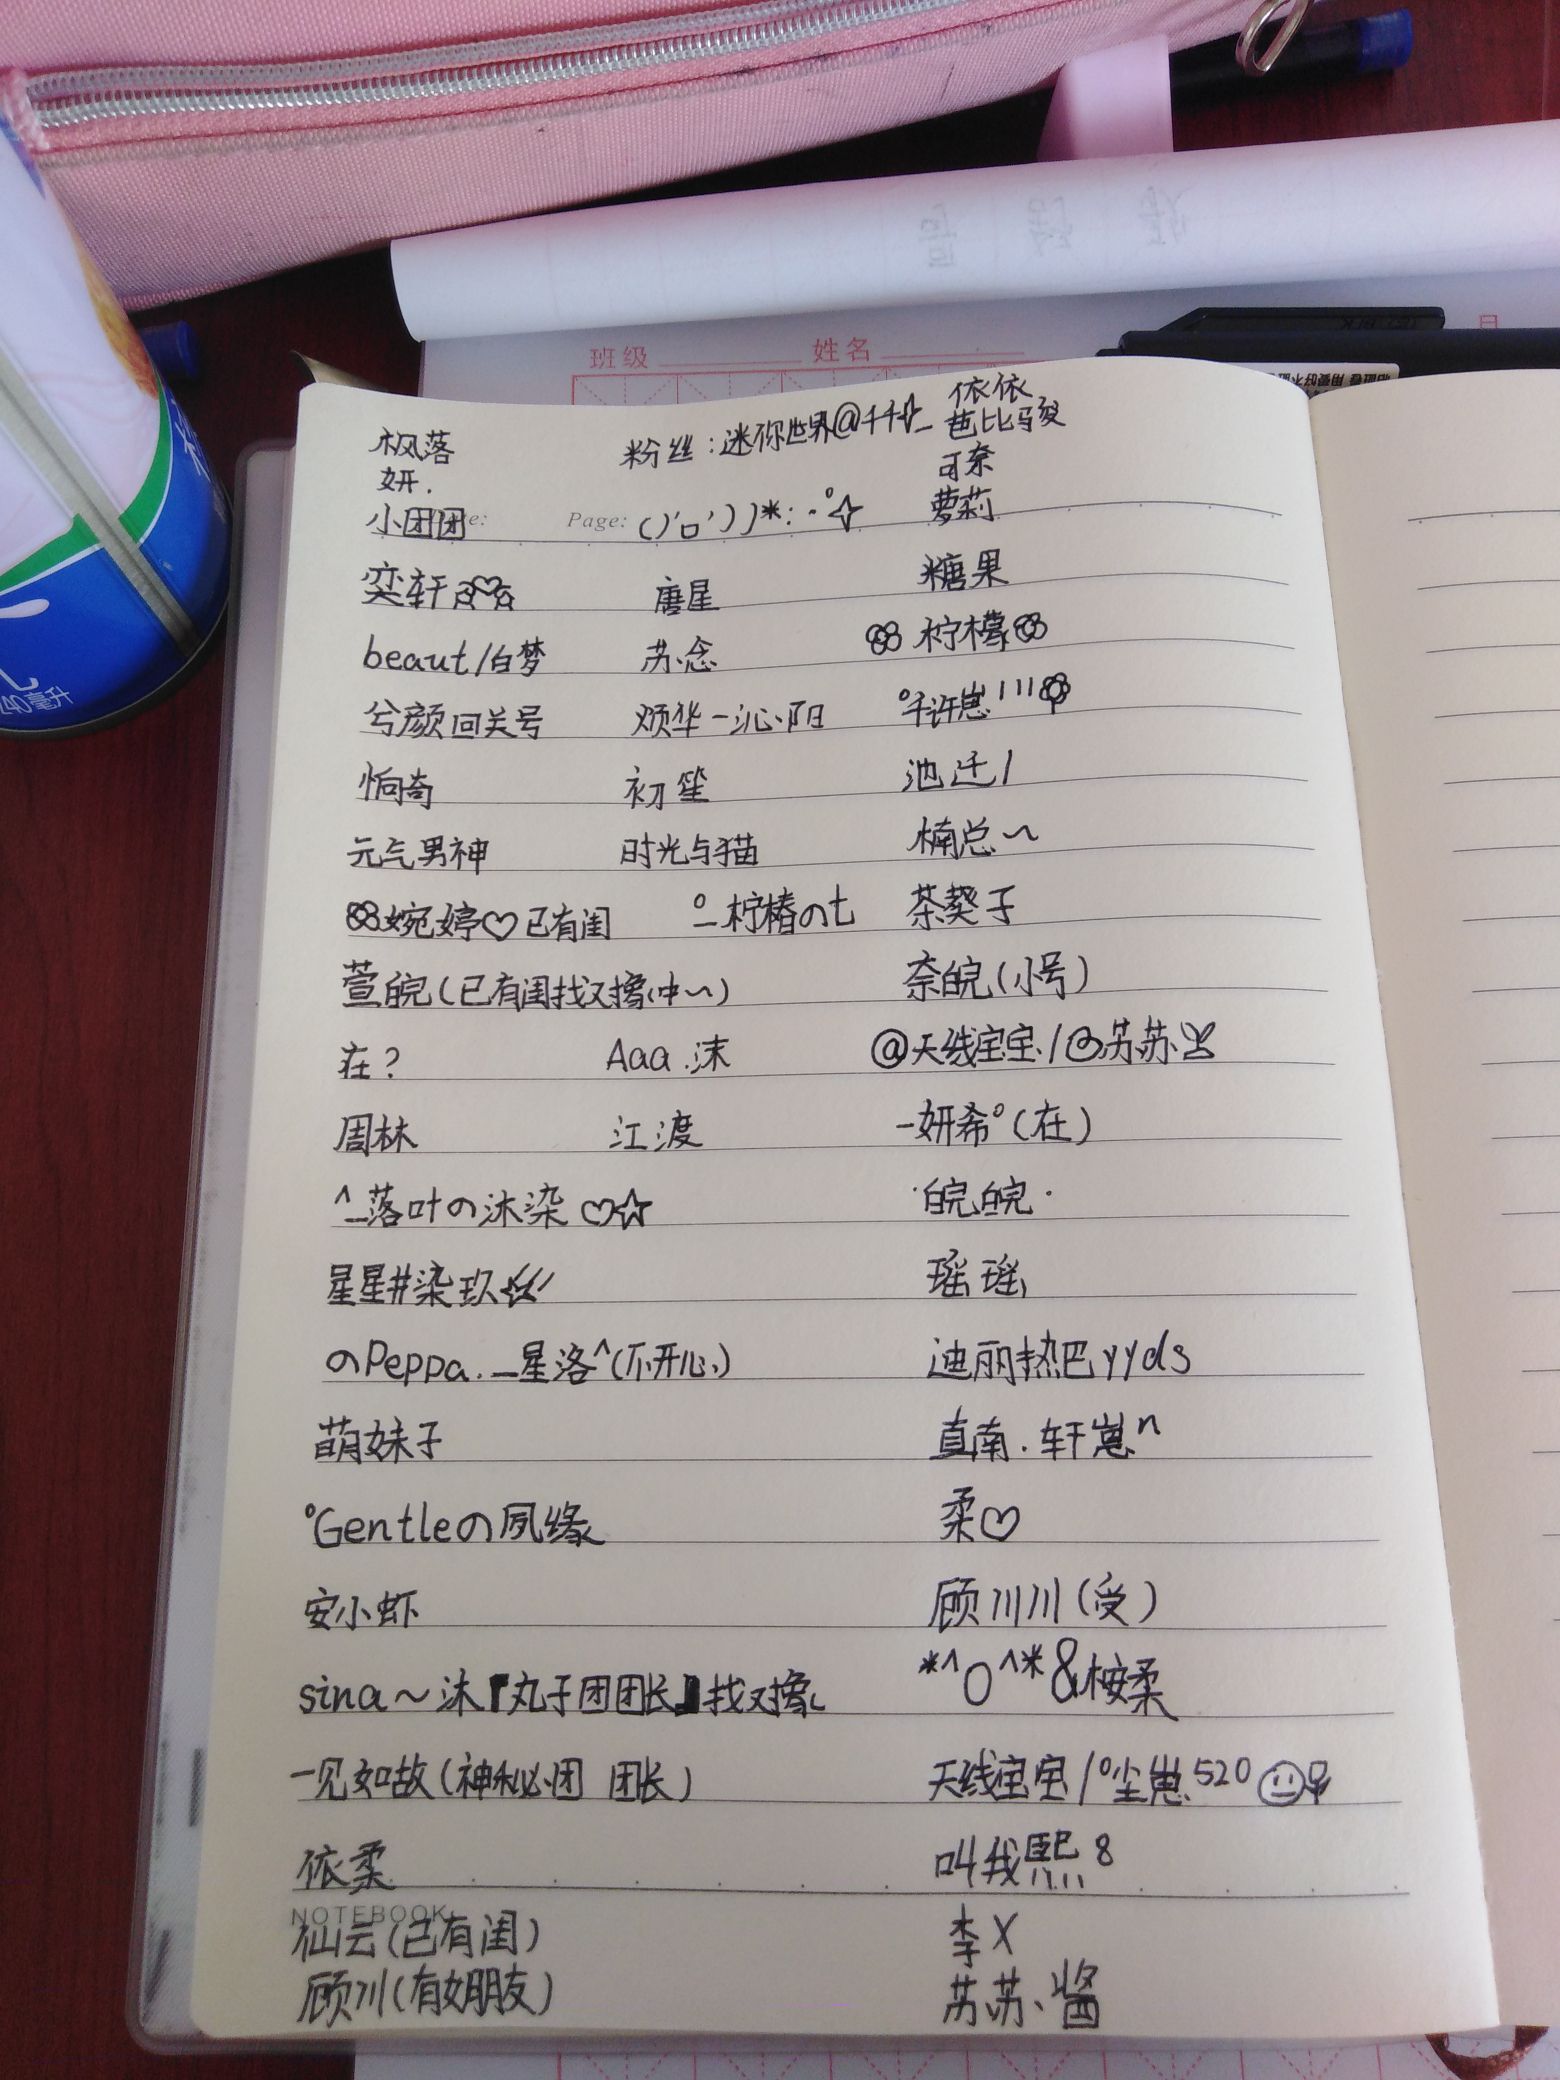 班级 姓名
日
枫落 粉丝:迷你世界@千千☆_ 依依
芭比琼
妍. 可奈
小团团 Page: ()'口'))*:··°☆ 萝莉
奕轩 唐星 糖果
beaut/白梦 苏念 柠檬
兮颜回关号 烦华一沁阳 °千许崽
恦奇 初笙 池迁/
元气男神 时光与猫 楠总~
婉婷♡已有闺 °_柠椿の七 茶葵子
萱皖(已有闺找对像中~) 奈皖(小号)
在? Aaa.沫 @天线宝宝/の苏苏
周林 江渡 -妍希°(在)
^_落叶の沐染♡☆ ·皖皖·
星星井染玖☆ 瑶瑶
のPeppa._星洛^(不开心) 迪丽热巴yyds
萌妹子 直南.轩崽n
°Gentleの夙缘 柔♡
安小虾 顾川川(受)
sina~沐『丸子团团长』找对像 *^O^*&桉柔
一见如故(神秘团 团长) 天线宝宝/°尘崽520
依柔 叫我熙8
NOTEBOOK
仙云(已有闺) 李X
顾川(有女朋友) 苏苏、酱
40毫升